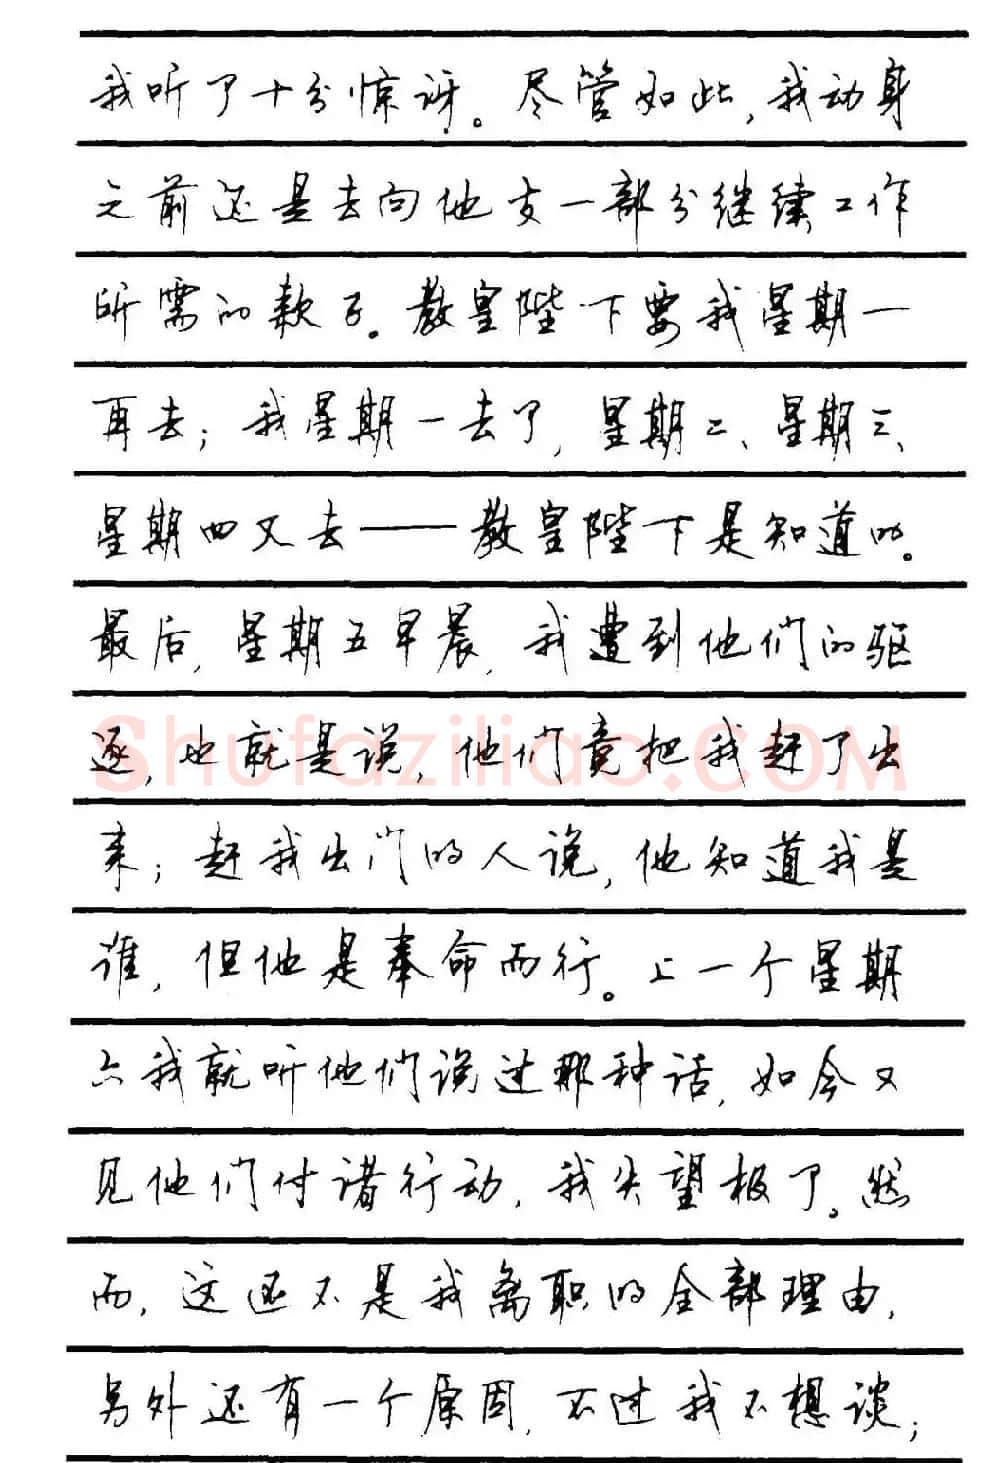 我听了十分惊讶。尽管如此,我动身
之前还是去向他支一部分继续工作
所需的款子。教皇陛下要我星期一
再去;我星期一去了,星期二、星期三、
星期四又去——教皇陛下是知道的。
最后,星期五早晨,我遭到他们的驱
逐,也就是说,他们竟把我赶了出
来;赶我出门的人说,他知道我是
谁,但他是奉命而行。上一个星期
六我就听他们说过那种话,如今又
见他们付诸行动,我失望极了。然
而,这还不是我离职的全部理由,
另外还有一个原因,不过我不想谈;
Shufaziliao.COM